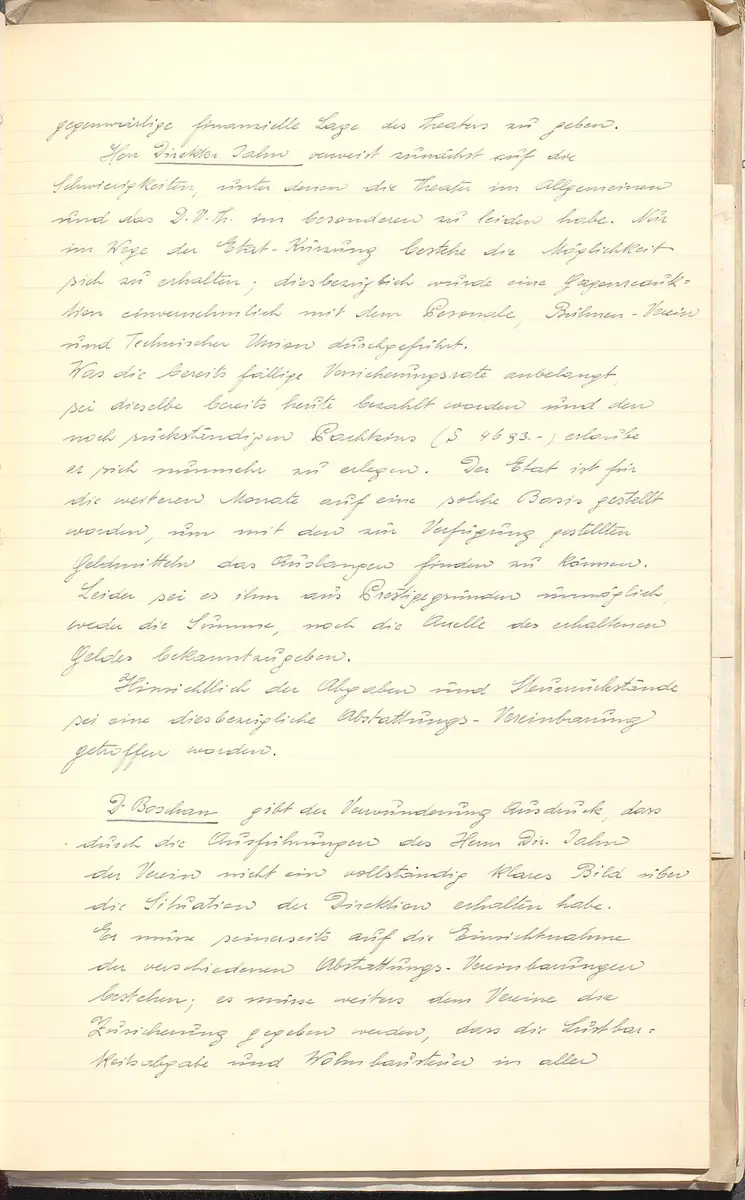 gegenwärtige finanzielle Lage des Theaters zu geben.
Herr Direktor Jahn verweist zunächst auf die
Schwierigkeiten, unter denen die Theater im Allgemeinen
und das D.V.Th. im besonderen zu leiden habe. Nur
im Wege der Etat-Kürzung bestehe die Möglichkeit
sich zu erhalten; diesbezüglich wurde eine Gagenreduk-
tion einvernehmlich mit dem Personale, Bühnen-Verein
und Technischer Union durchgeführt.
Was die bereits fällige Versicherungsrate anbelangt,
sei dieselbe bereits heute bezahlt worden und den
noch rückständigen Pachtzins (S 4693.-) erlaube
er sich nunmehr zu erlegen. Der Etat ist für
die weiteren Monate auf eine solche Basis gestellt
worden, um mit den zur Verfügung gestellten
Geldmitteln das Auslangen finden zu können.
Leider sei es ihm aus Prestigegründen unmöglich,
weder die Summe, noch die Quelle des erhaltenen
Geldes bekanntzugeben.
Hinsichtlich der Abgaben und Steuerrückstände
sei eine diesbezügliche Abstattungs-Vereinbarung
getroffen worden.
Dr Boschan gibt der Verwunderung Ausdruck, dass
durch die Ausführungen des Herrn Dir. Jahn
der Verein nicht ein vollständig klares Bild über
die Situation der Direktion erhalten habe.
Er müsse seinerseits auf die Einsichtnahme
der verschiedenen Abstattungs-Vereinbarungen
bestehen; es müsse weiters dem Vereine die
Zusicherung gegeben werden, dass die Lustbar-
keitsabgabe und Wohnbausteuer in aller